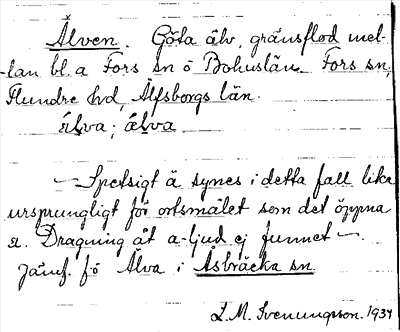 Älven. Göta älv, gränsflod mel-
lan bl. a Fors sn o Bohuslän. Fors sn,
Flundre hd, Älfsborgs län.
älva; älva
— Spetsigt ä synes i detta fall lika
ursprungligt för ortsmålet som det öppna
ä. Dragning åt a-ljud ej funnet —.
Jämf. fö Älva i Åsbräcka sn
L. M. Svenungsson. 1934